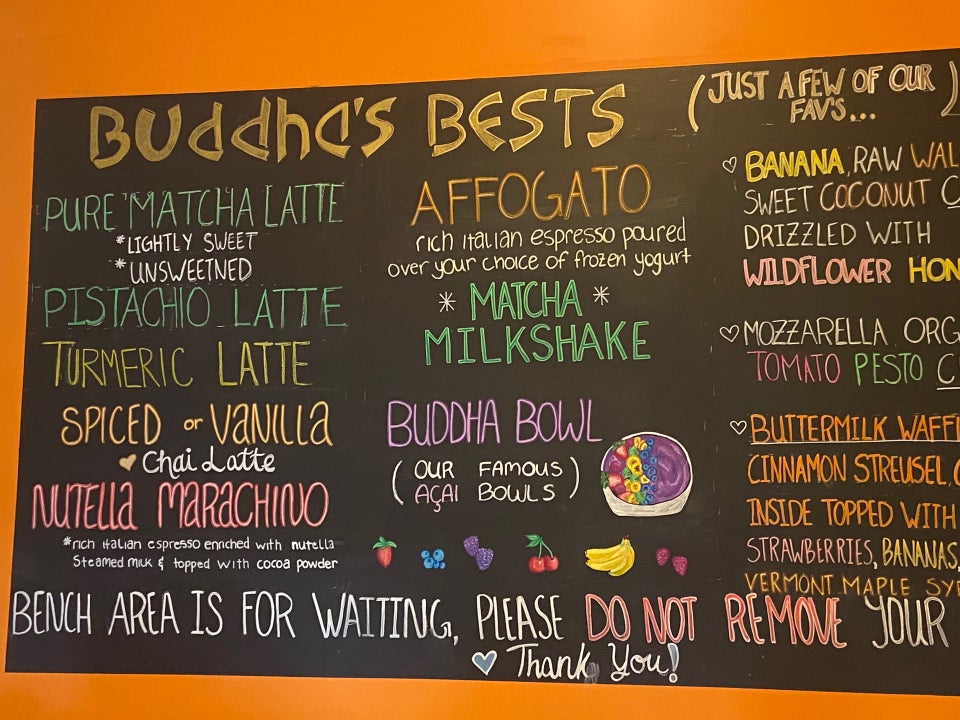 BUddha's BESTS
PURE MATCHA LATTE
*LIGHTLY SWEET
*UNSWEETNED
PISTACHIO LATTE
TURMERIC LATTE
SPICED or VANILLA
Chai Latte
NUTELLA MARACHINO
*rich italian espresso enriched with nutella
Steamed milk & topped with cocoa powder
AFFOGATO
rich italian espresso poured
over your choice of frozen yogurt
* MATCHA *
MILKSHAKE
BUDDHA BOWL
(OUR FAMOUS
AÇAI BOWLS)
(JUST A FEW OF OUR)
FAV'S...
BANANA, RAW WAL
SWEET COCONUT C
DRIZZLED WITH
WILDFLOWER HON
MOZZARELLA ORG
TOMATO PESTO C
BUTTERMILK WAFF
CINNAMON STREUSEL, (
INSIDE TOPPED WITH
STRAWBERRIES, BANANAS,
VERMONT MAPLE SY
BENCH AREA IS FOR WAITING, PLEASE DO NOT REMOVE YOUR
Thank You!